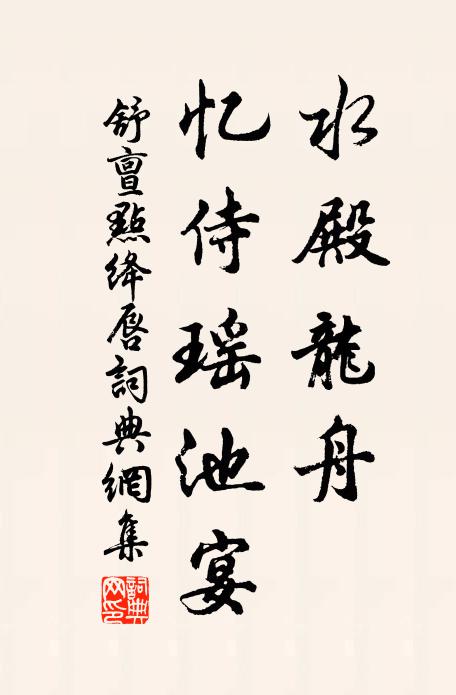 水殿龍舟
忆侍瑶池宴
舒亶點绛唇詞典網集
詞典网印